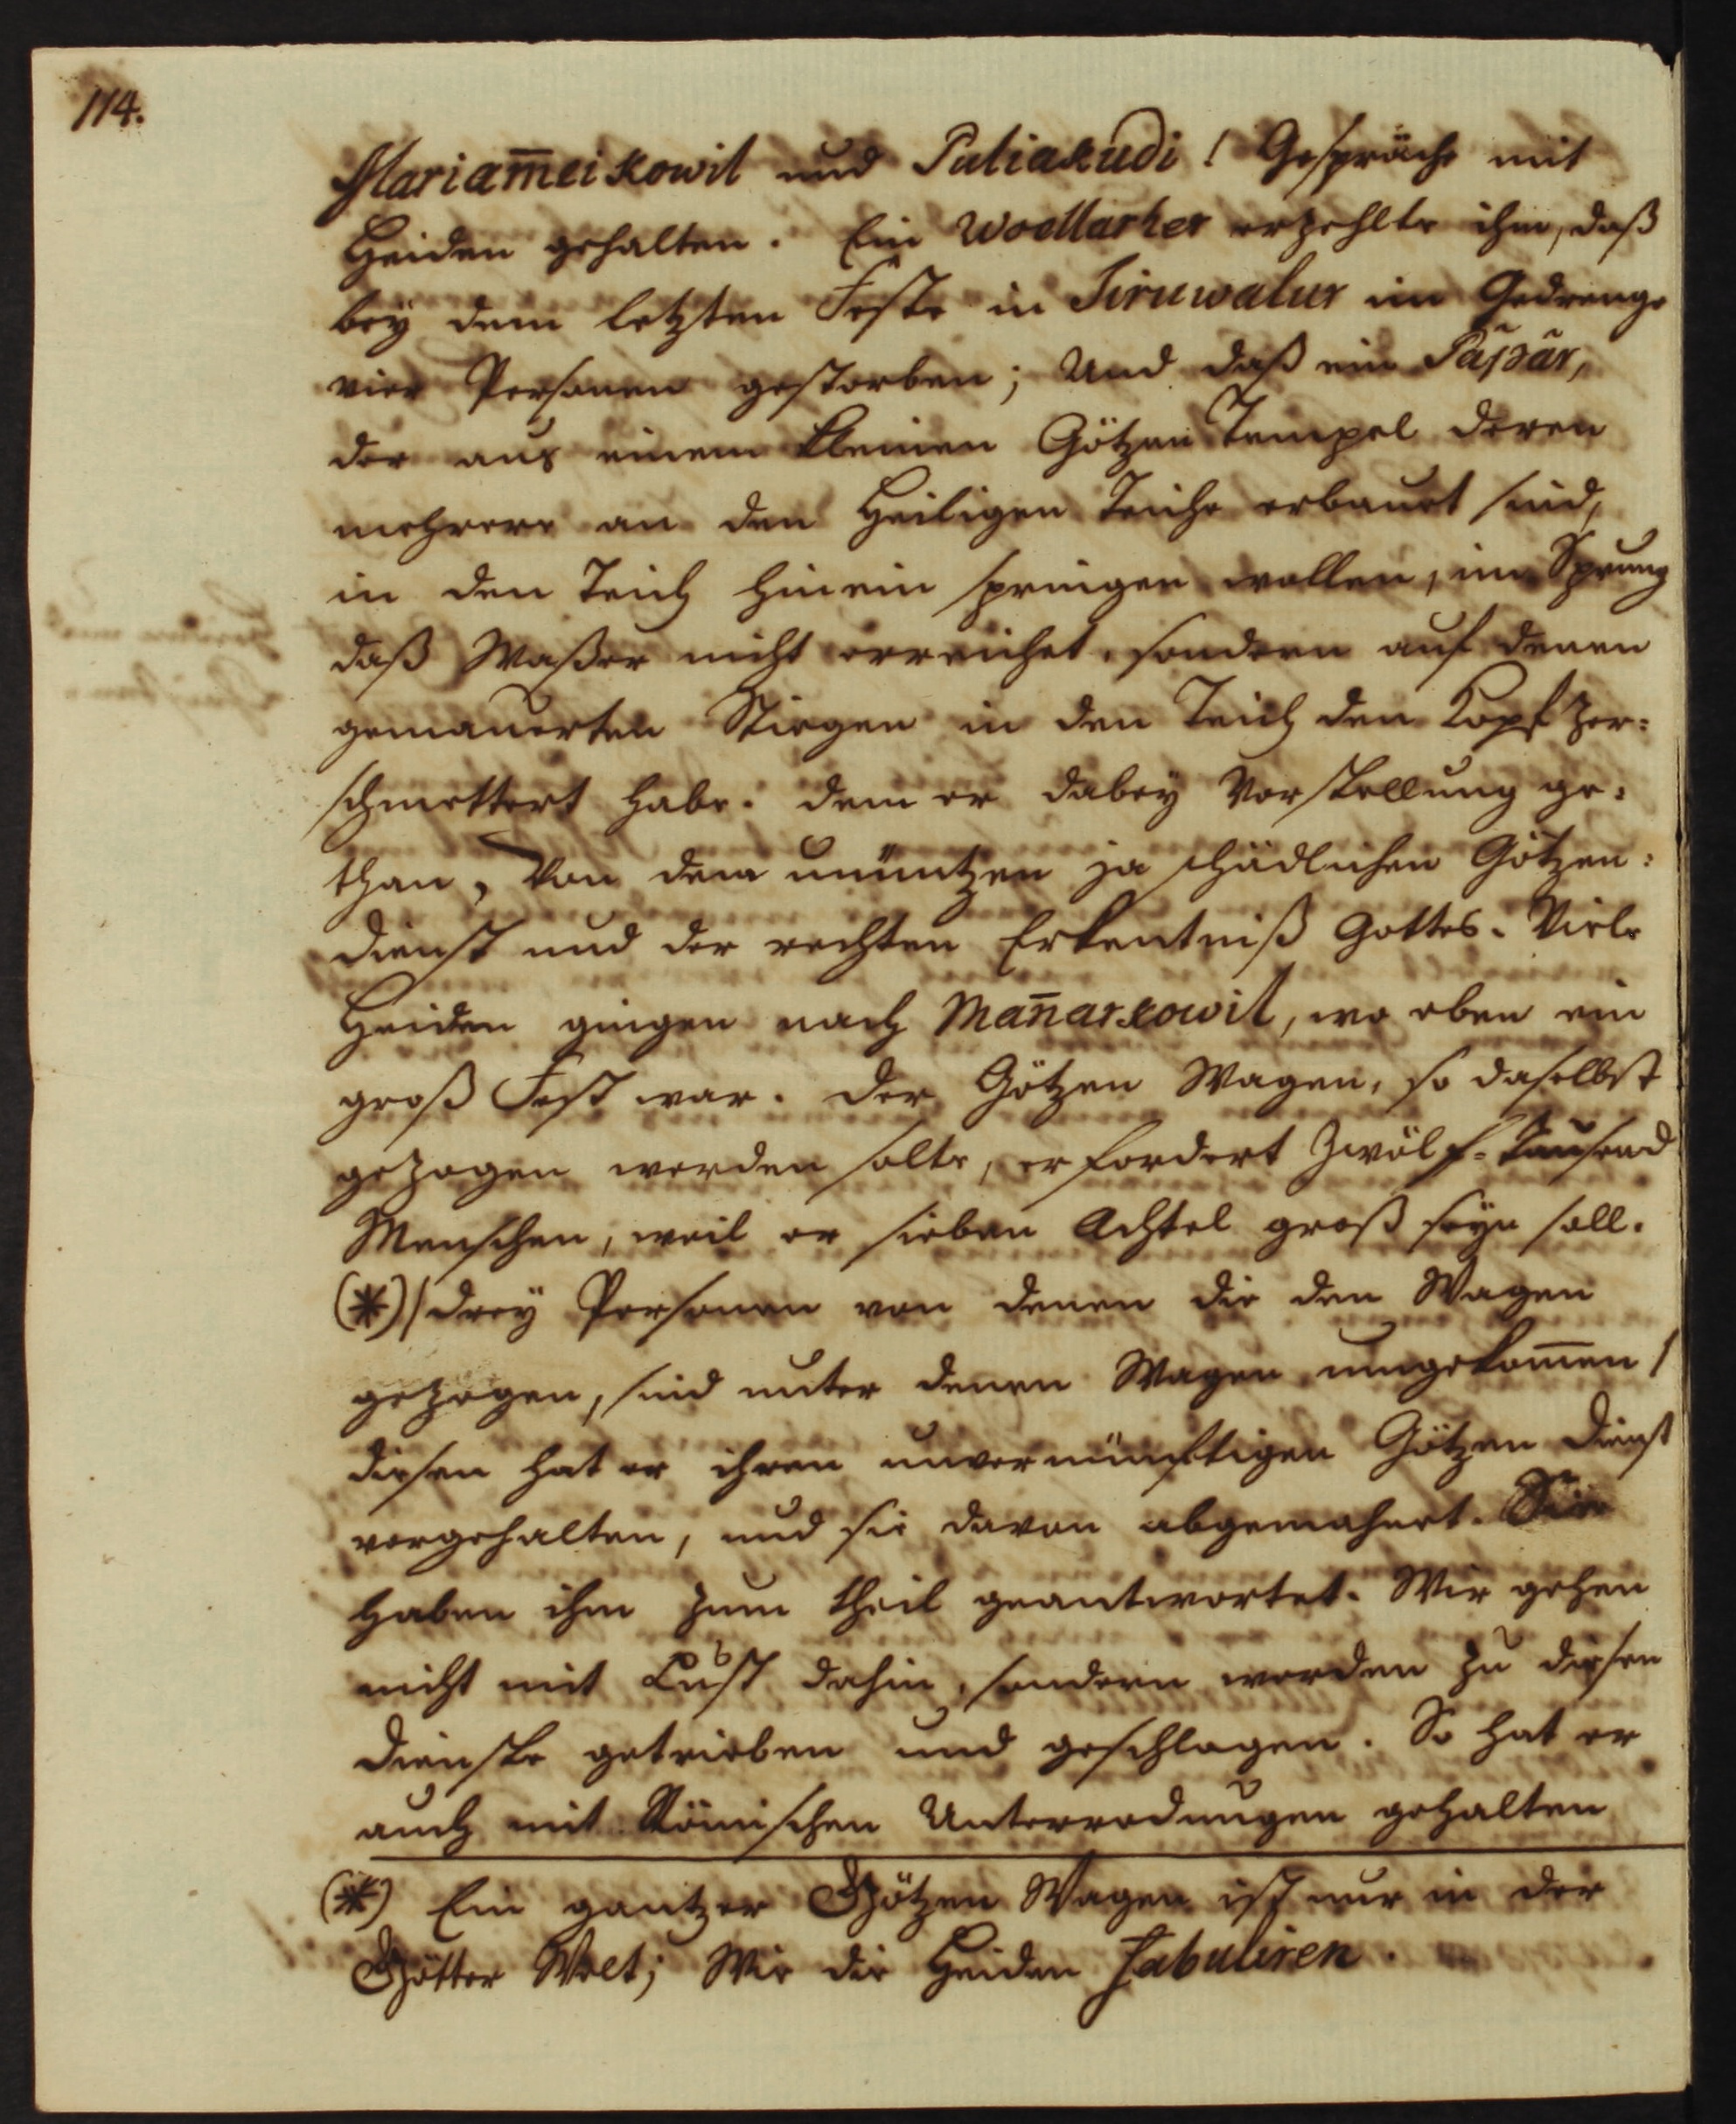 114.
Mariam̅eikowil und Puliakudi! Gespräche mit
Heiden gehalten. Ein Woettarher erzehlte ihm, daß
bey dem letzten Feste in Tiruwalur im Gedrenge
vier Personen gestorben; Und daß ein Pâpâr,
der aus einem kleinen Götzen Tempel deren
mehrere an den Heiligen Teiche erbauet sind,
in den Teich hinein springen wollen, im Sprung
daß Waßer nicht erreichet, sondern auf denen
gemauerten Stiegen in den Teich den Kopf zer=
schmettert habe. dem er dabey Vorstellung ge=
than, Von dem unnützen ja schädlichen Götzen=
dienst und der rechten Erkentniß Gottes. Viele
Heiden gingen nach Man̅arkowil, wo eben ein
groß Fest war. der Götzen Wagen, so daselbst
gezogen werden solte, erfordert Zwölf=tausend
Menschen, weil er sieben Achtel groß seyn soll.
(*) drey Personen von denen die den Wagen
gezogen, sind unter denen Wagen umgekom̅en /
diesen hat er ihren unvernünftigen Götzen dienst
vorgehalten, und sie davon abgemahnet. Sie
haben ihm zum theil geantwortet. Wir gehen
nicht mit Lust dahin, sondern werden zu diesen
dienste getrieben und geschlagen. So hat er
auch mit Römischen Unterredungen gehalten
(*) Ein gantzer Götzen Wagen ist nur in der
Götter Welt; Wie die Heiden fabuliren.